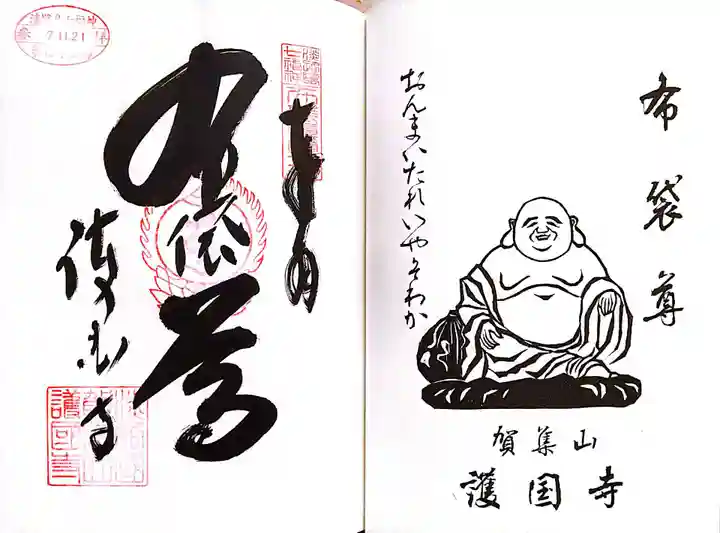 奉拝
布袋尊
護国寺
7.11.21
護國寺
布袋尊
おんまいたれいやそわか
賀集山
護国寺